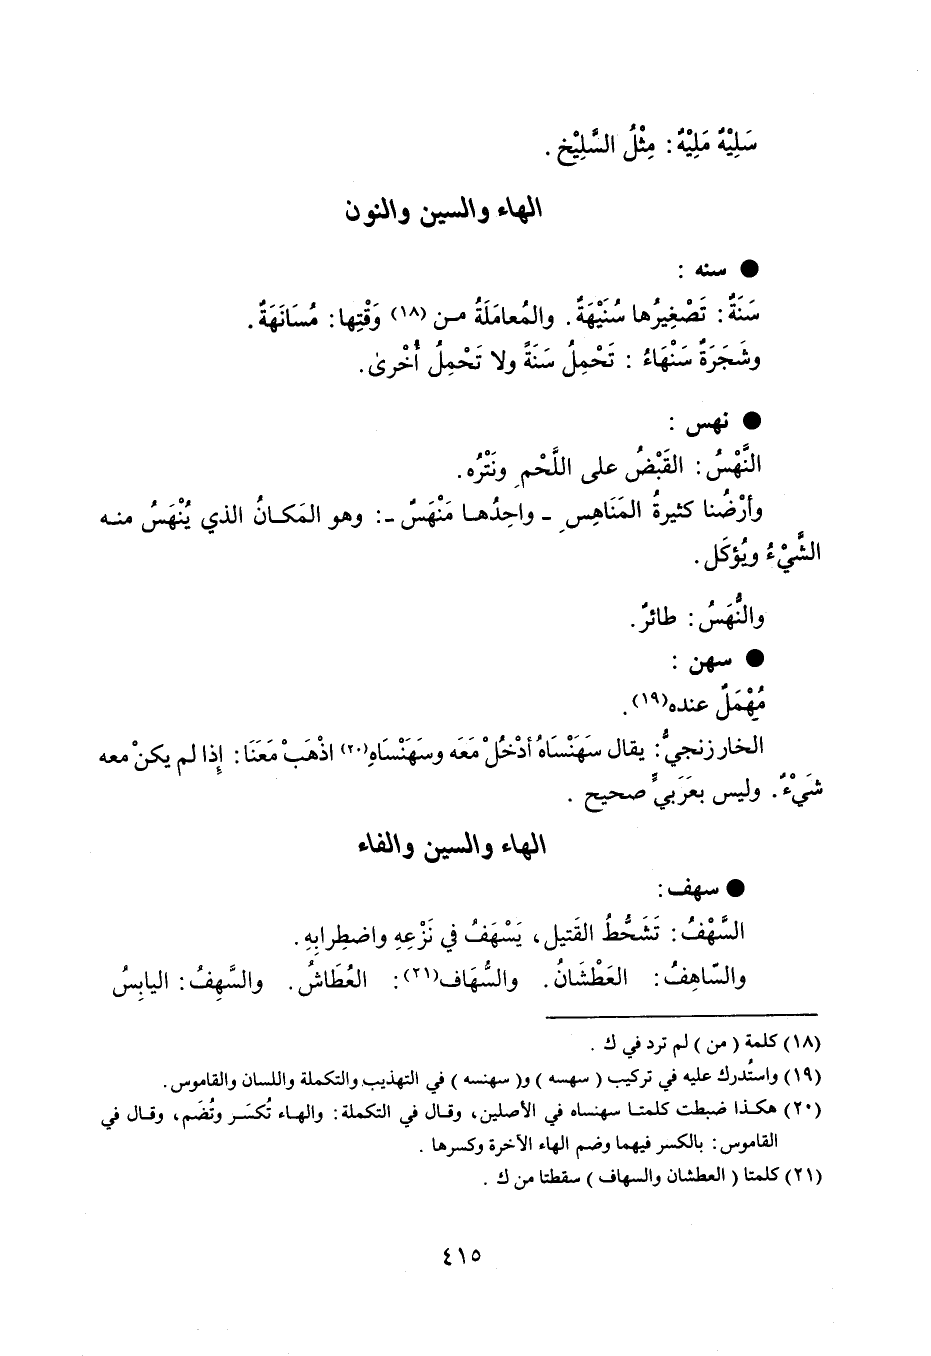 سَلِيْهٌ مَلِيْهٌ: مِثْلُ السَّلِيْخِ.
الهاء والسين والنون
● سنه :
سَنَةٌ: تَصْغِيرُها سُنَيْهَةٌ. والمُعامَلَةُ من (١٨) وَقْتِها: مُسَانَهَةٌ.
وشَجَرَةٌ سَنْهَاءُ : تَحْمِلُ سَنَةً ولا تَحْمِلُ أُخْرىٰ.
● نهس :
النَّهْسُ: القَبْضُ على اللَّحْمِ ونَتْرُه.
وأرْضُنا كثيرةُ المَنَاهِسِ - واحِدُهـا مَنْهَسٌ -: وهو المَكـانُ الذي يُنْهَسُ منـه
الشَّيْءُ ويُؤكَل.
والنُّهَسُ: طائرٌ.
● سهن :
مُهْمَلٌ عنده(١٩).
الخارزنجيُّ: يقال سَهَنْسَاهُ أدْخُلْ مَعَه وسَهَنْسَاهِ(٢٠) اذْهَبْ مَعَنَا: إذا لم يكنْ معه
شَيْءٌ. وليس بعَرَبيٍّ صحيح .
الهاء والسين والفاء
● سهف:
السَّهْفُ: تَشَحُّطُ القَتيل، يَسْهَفُ في نَزْعِهِ واضطِرابِهِ.
والسّاهِفُ: العَطْشَانُ. والسُّهَاف(٢١): العُطَاشُ. والسَّهِفُ: اليابِسُ
(١٨) كلمة ( من ) لم ترد في ك .
(١٩) واستُدرك عليه في تركيب ( سهسه ) و( سهنسه ) في التهذيب والتكملة واللسان والقاموس.
(٢٠) هكـذا ضبطت كلمتـا سهنساه في الأصلين، وقـال في التكملة: والهـاء تُكسَـر وتُضَم، وقـال في
القاموس: بالكسر فيهما وضم الهاء الآخرة وكسرها .
(٢١) كلمتا ( العطشان والسهاف ) سقطتا من ك .
٤١٥